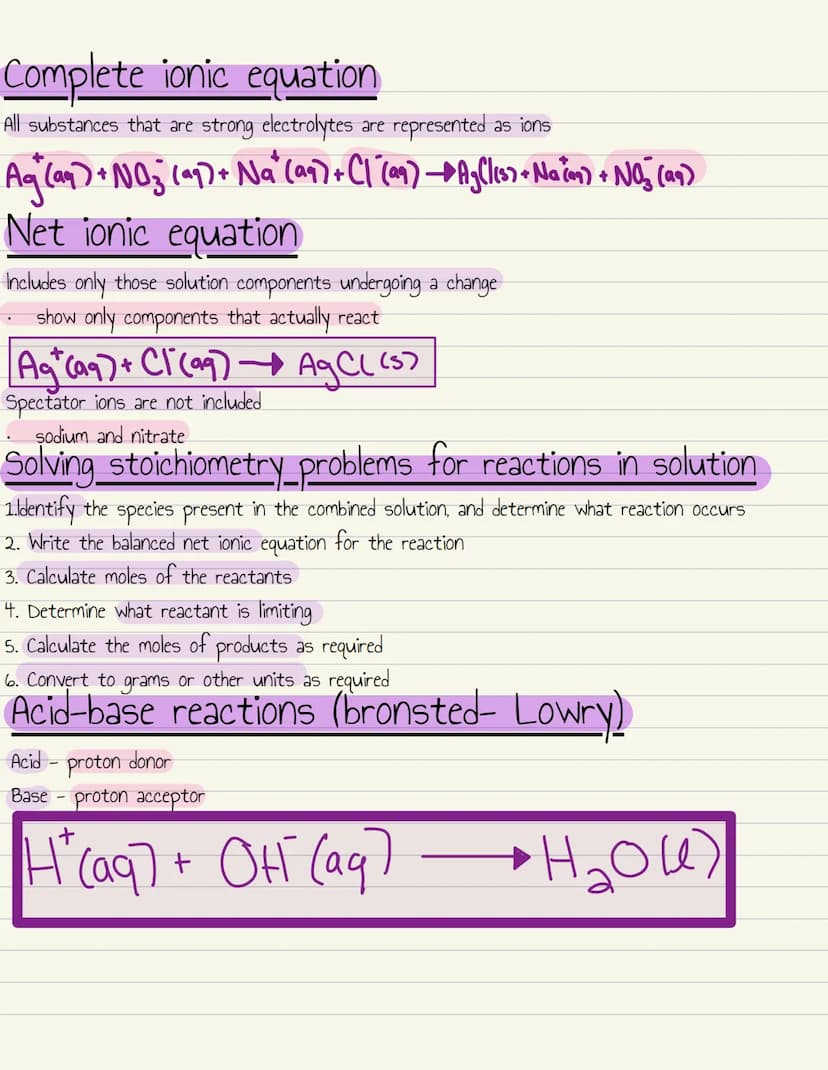 Complete ionic equation
All substances that are strong electrolytes are represented as ions
Ag⁺(aq) + NO₃⁻(aq) + Na⁺(aq) + Cl⁻(aq) → AgCl(s) + Na⁺(aq) + NO₃⁻(aq)
Net ionic equation
Includes only those solution components undergoing a change
· show only components that actually react
Ag⁺(aq) + Cl⁻(aq) → AgCl(s)
Spectator ions are not included
· sodium and nitrate
Solving stoichiometry problems for reactions in solution
1.Identify the species present in the combined solution, and determine what reaction occurs
2. Write the balanced net ionic equation for the reaction
3. Calculate moles of the reactants
4. Determine what reactant is limiting
5. Calculate the moles of products as required
6. Convert to grams or other units as required
Acid-base reactions (bronsted- Lowry)
Acid - proton donor
Base - proton acceptor
H⁺(aq) + OH⁻(aq) → H₂O(l)